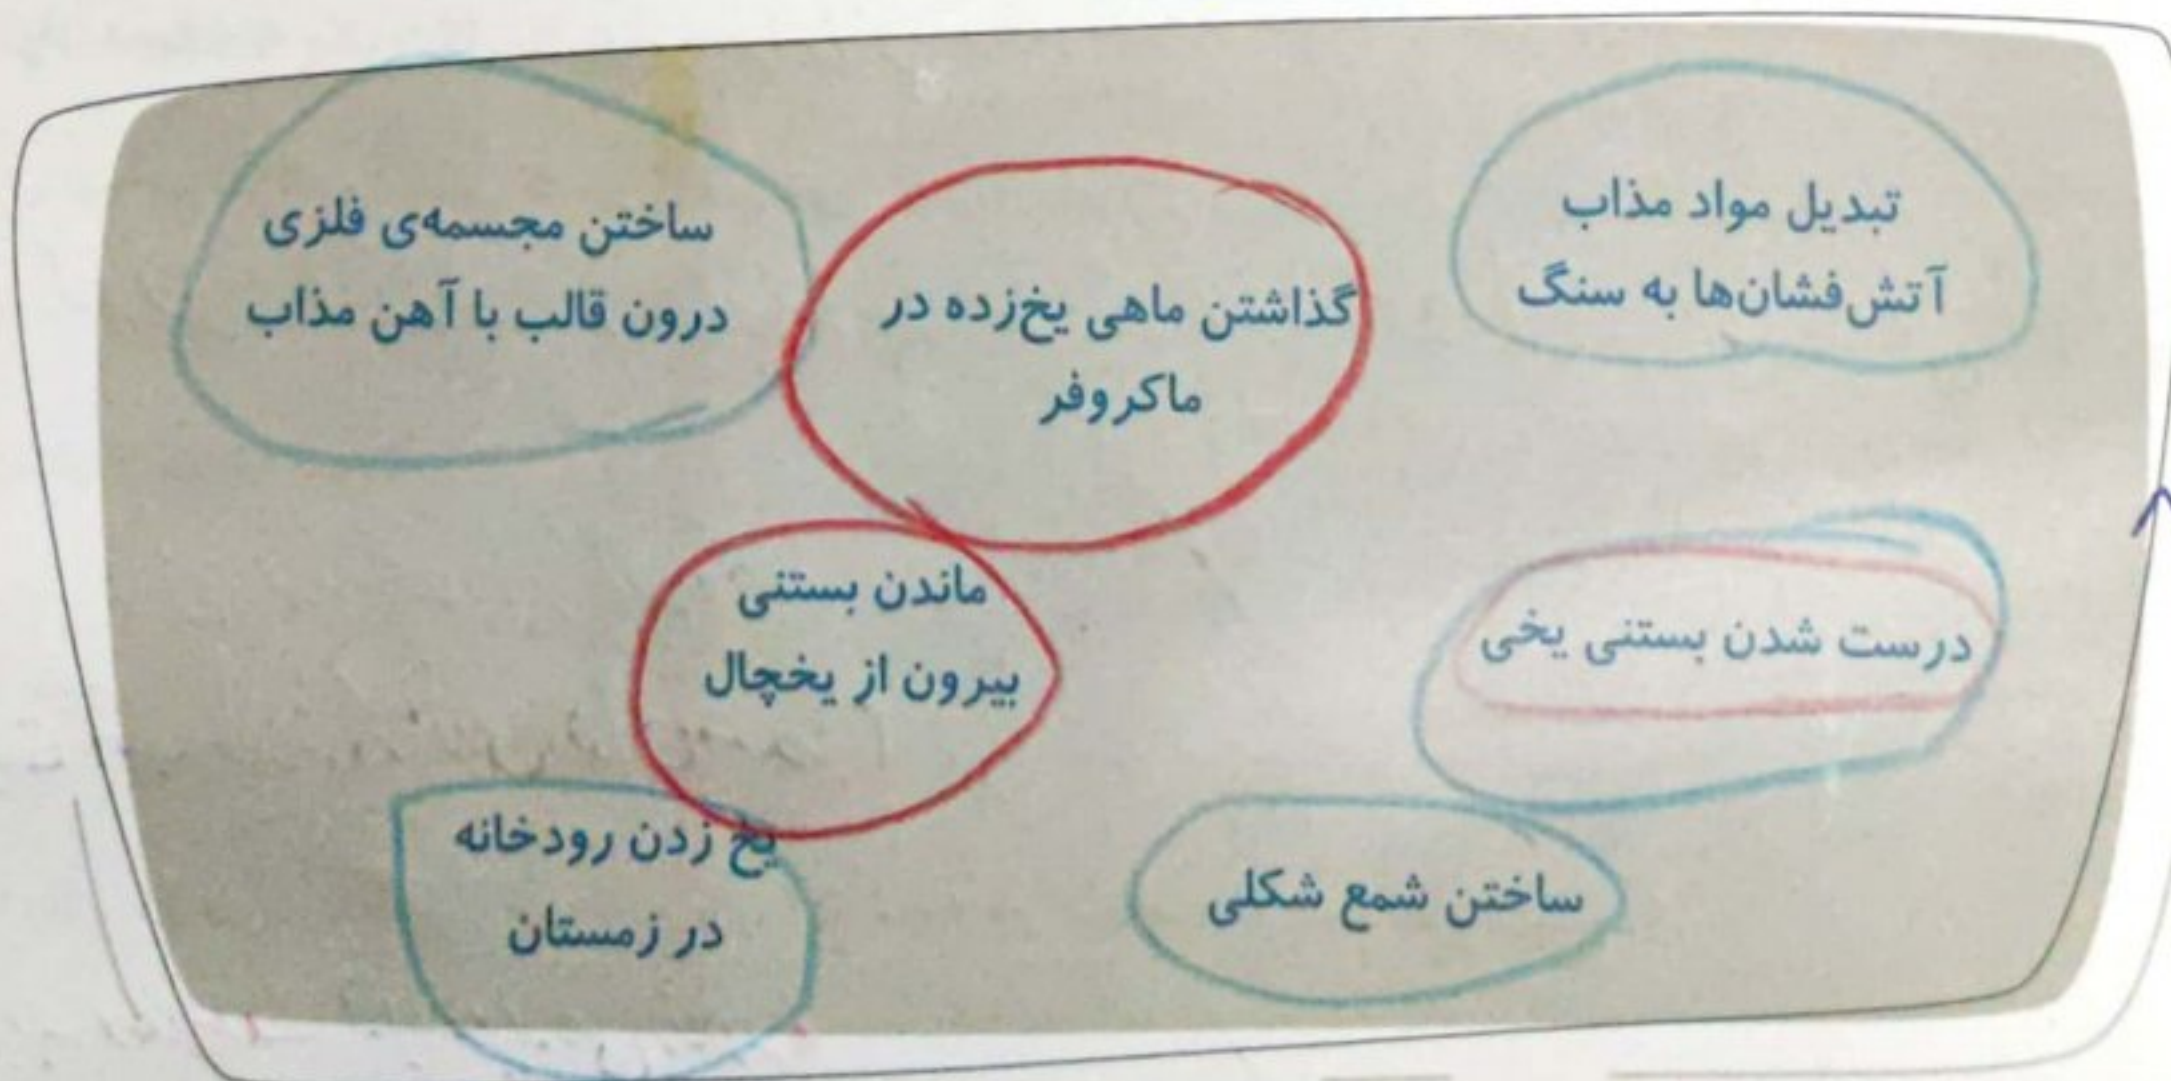 تبدیل مواد مذاب
آتش‌فشان‌ها به سنگ
گذاشتن ماهی یخ‌زده در
ماکروفر
ساختن مجسمه‌ی فلزی
درون قالب با آهن مذاب
درست شدن بستنی یخی
ماندن بستنی
بیرون از یخچال
ساختن شمع شکلی
یخ زدن رودخانه
در زمستان